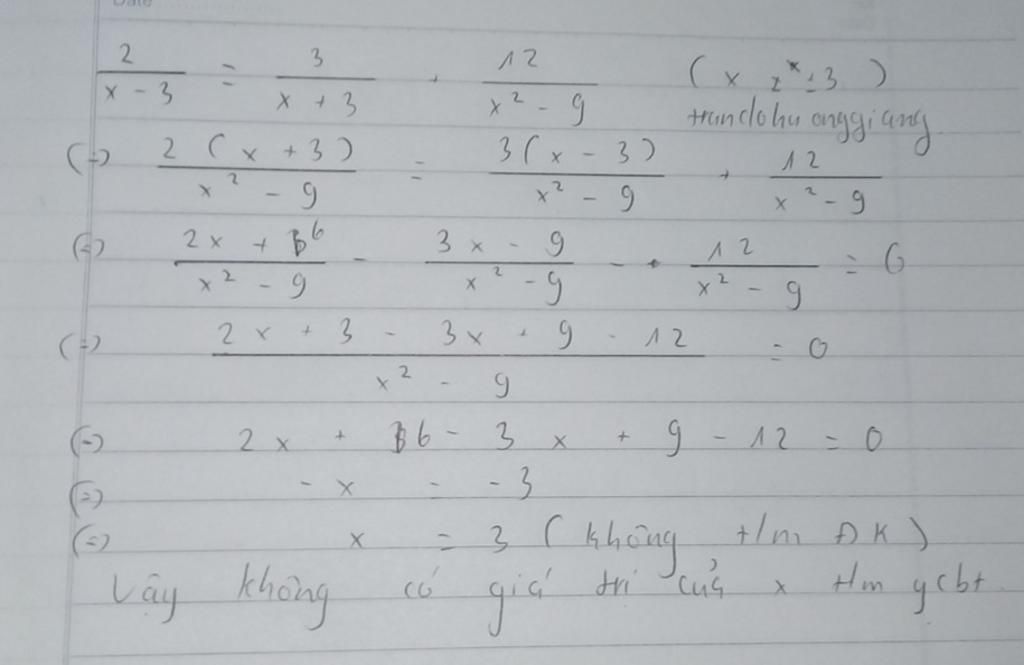 2/(x - 3) = 3/(x + 3) + 12/(x² - 9) (x ≠ ±3)
trandohuonggiang
(=) 2(x + 3)/(x² - 9) = 3(x - 3)/(x² - 9) + 12/(x² - 9)
(=) (2x + 6)/(x² - 9) - (3x - 9)/(x² - 9) - 12/(x² - 9) = 0
(=) (2x + 3 - 3x + 9 - 12)/(x² - 9) = 0
(=) 2x + 6 - 3x + 9 - 12 = 0
(=) - x = - 3
(=) x = 3 (không t/m ĐK)
Vậy không có giá trị của x t/m ycbt